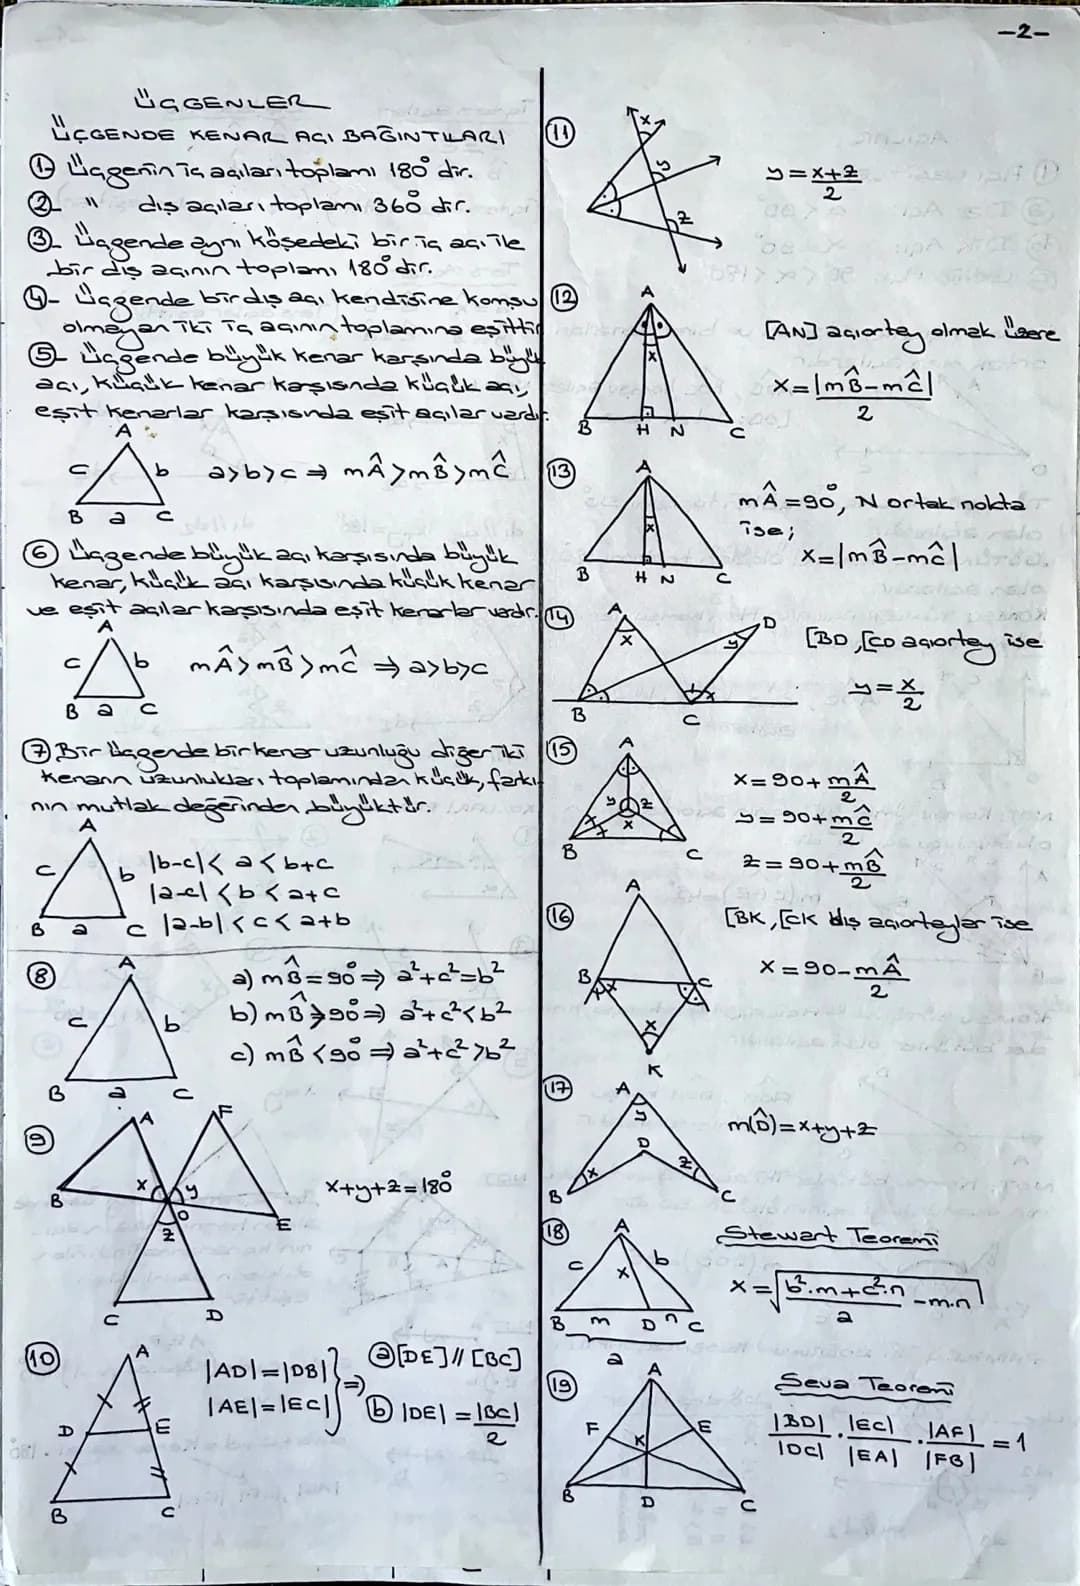 -2-
ÜÇGENLER
ÜÇGENDE KENAR AÇI BAĞINTILARI
1- Üçgenin iç açıları toplamı 180° dir.
2- " dış açıları toplamı 360° dir.
3- Üçgende aynı köşedeki bir iç açı ile
bir dış açının toplamı 180° dir.
4- Üçgende bir dış açı kendisine komşu
olmayan iki iç açının toplamına eşittir
5- Üçgende büyük kenar karşısında büyük
açı, küçük kenar karşısında küçük açı,
eşit kenarlar karşısında eşit açılar vardır.
A
c b
B a C
a>b>c ⇒ mÂ>mB̂>mĈ
6 Üçgende büyük açı karşısında büyük
kenar, küçük açı karşısında küçük kenar
ve eşit açılar karşısında eşit kenarlar vardır.
A
c b
B a C
mÂ>mB̂>mĈ ⇒ a>b>c
7 Bir üçgende bir kenar uzunluğu diğer iki
kenarın uzunlukları toplamından küçük, farkı-
nın mutlak değerinden büyüktür.
A
c b
B a C
|b-c|< a < b+c
|a-c| < b < a+c
|a-b| < c < a+b
8
A
c b
B a C
a) mB̂=90° ⇒ a²+c²=b²
b) mB̂>90° ⇒ a²+c²<b²
c) mB̂<90° ⇒ a²+c²>b²
9
A F
B x y
O E
z
C D
x+y+z=180°
10
A
D E
B C
|AD|=|DB|
|AE|=|EC| ⇒
a [DE]//[BC]
b |DE|=|BC|/2
11
x
y
z
y=x+z/2
12
A
x
B H N C
[AN] açıortay olmak üzere
x=|mB̂-mĈ|/2
13
A
x
B H N C
mÂ=90°, N ortak nokta
ise;
x=|mB̂-mĈ|
14
A D
x y
B C
[BD,[CD açıortay ise
y=x/2
15
A
y z
x
B C
x=90+mÂ/2
y=90+mĈ/2
z=90+mB̂/2
16
A
B C
x
K
[BK,[CK dış açıortaylar ise
x=90-mÂ/2
17
A
y
D
x z
B C
m(D̂)=x+y+z
18
A
c x b
B m D n C
a
Stewart Teoremi
x=√b².m+c².n/a-m.n
19
A
F E
K
B D C
Seva Teoremi
|BD|/|DC|.|EC|/|EA|.|AF|/|FB|=1